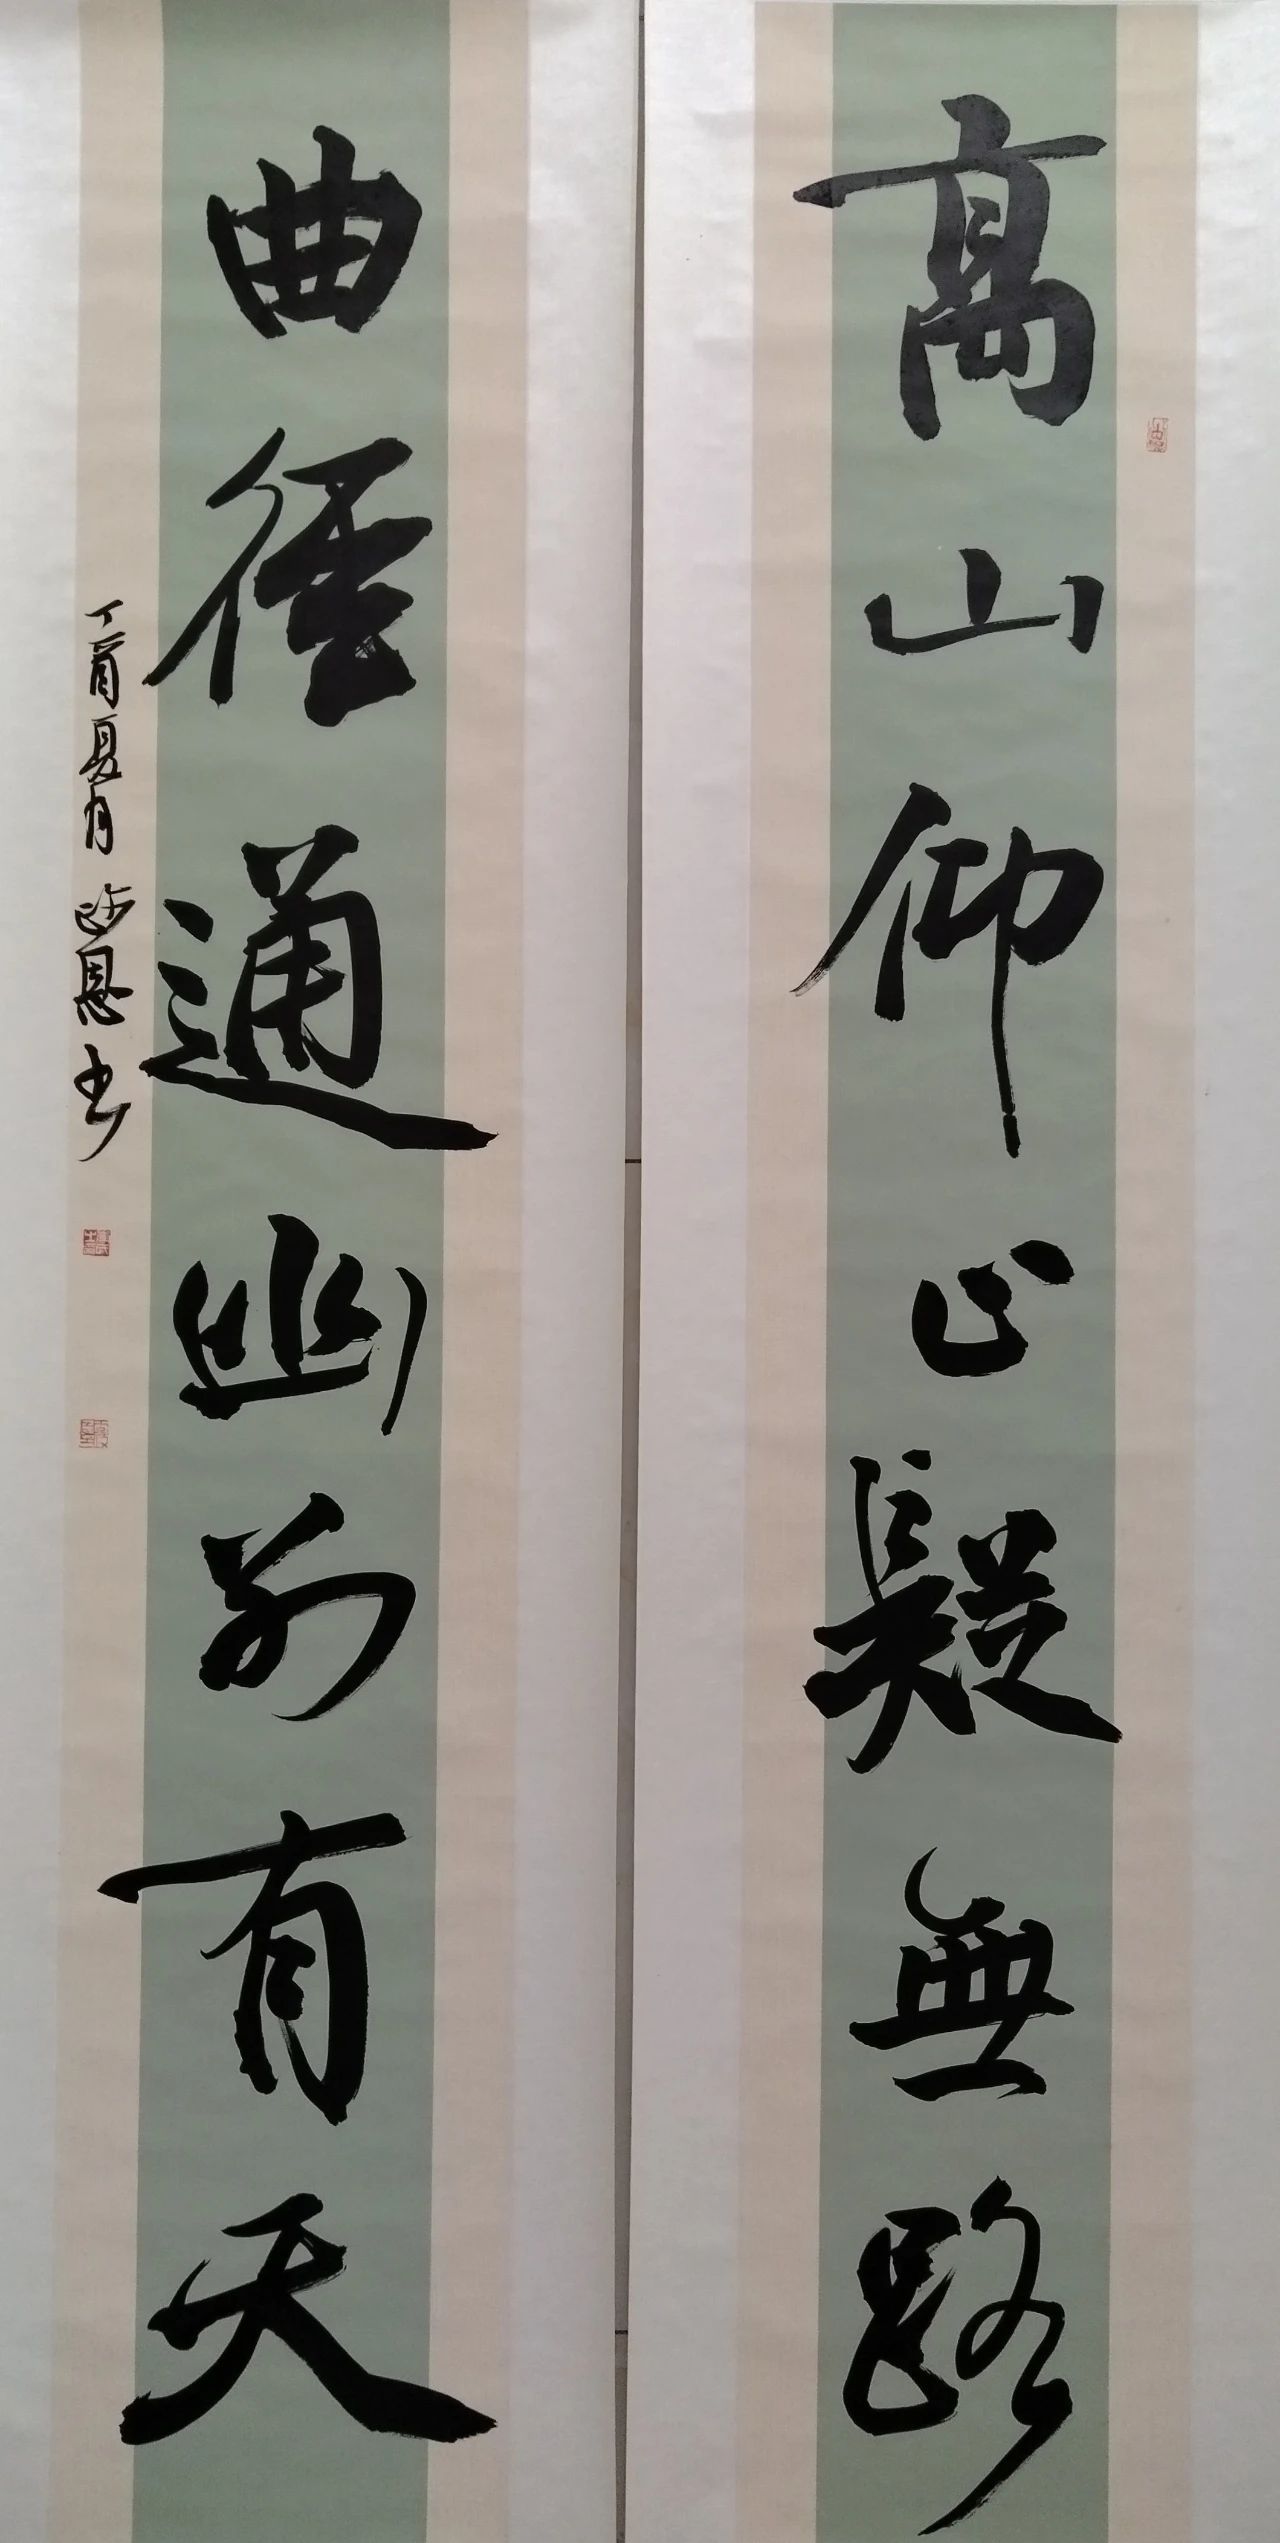 高山仰止疑無路
曲徑通幽別有天
丁酉夏月 恩书